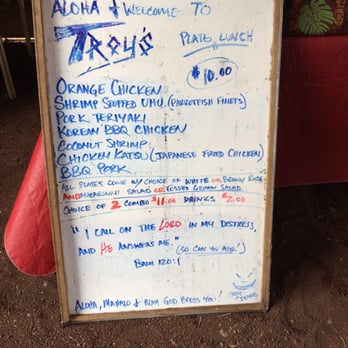 ALOHA & WELCOME TO
TROY'S
PLATE LUNCH
$10.00
ORANGE CHICKEN
SHRIMP STUFFED UHU (PARROTFISH FILETS)
PORK TERIYAKI
KOREAN BBQ CHICKEN
COCONUT SHRIMP
CHICKEN KATSU (JAPANESE FRIED CHICKEN)
BBQ PORK
ALL PLATES COME W/ CHOICE OF WHITE OR BROWN RICE
AND MACARONI SALAD OR TOSSED GREEN SALAD
CHOICE OF 2 COMBO $11.00 DRINKS $2.00
"I CALL ON THE LORD IN MY DISTRESS,
AND HE ANSWERS ME."
(SO CAN YOU ALSO!)
PSALM 120:1
ALOHA, MAHALO & MAY GOD BLESS YOU!